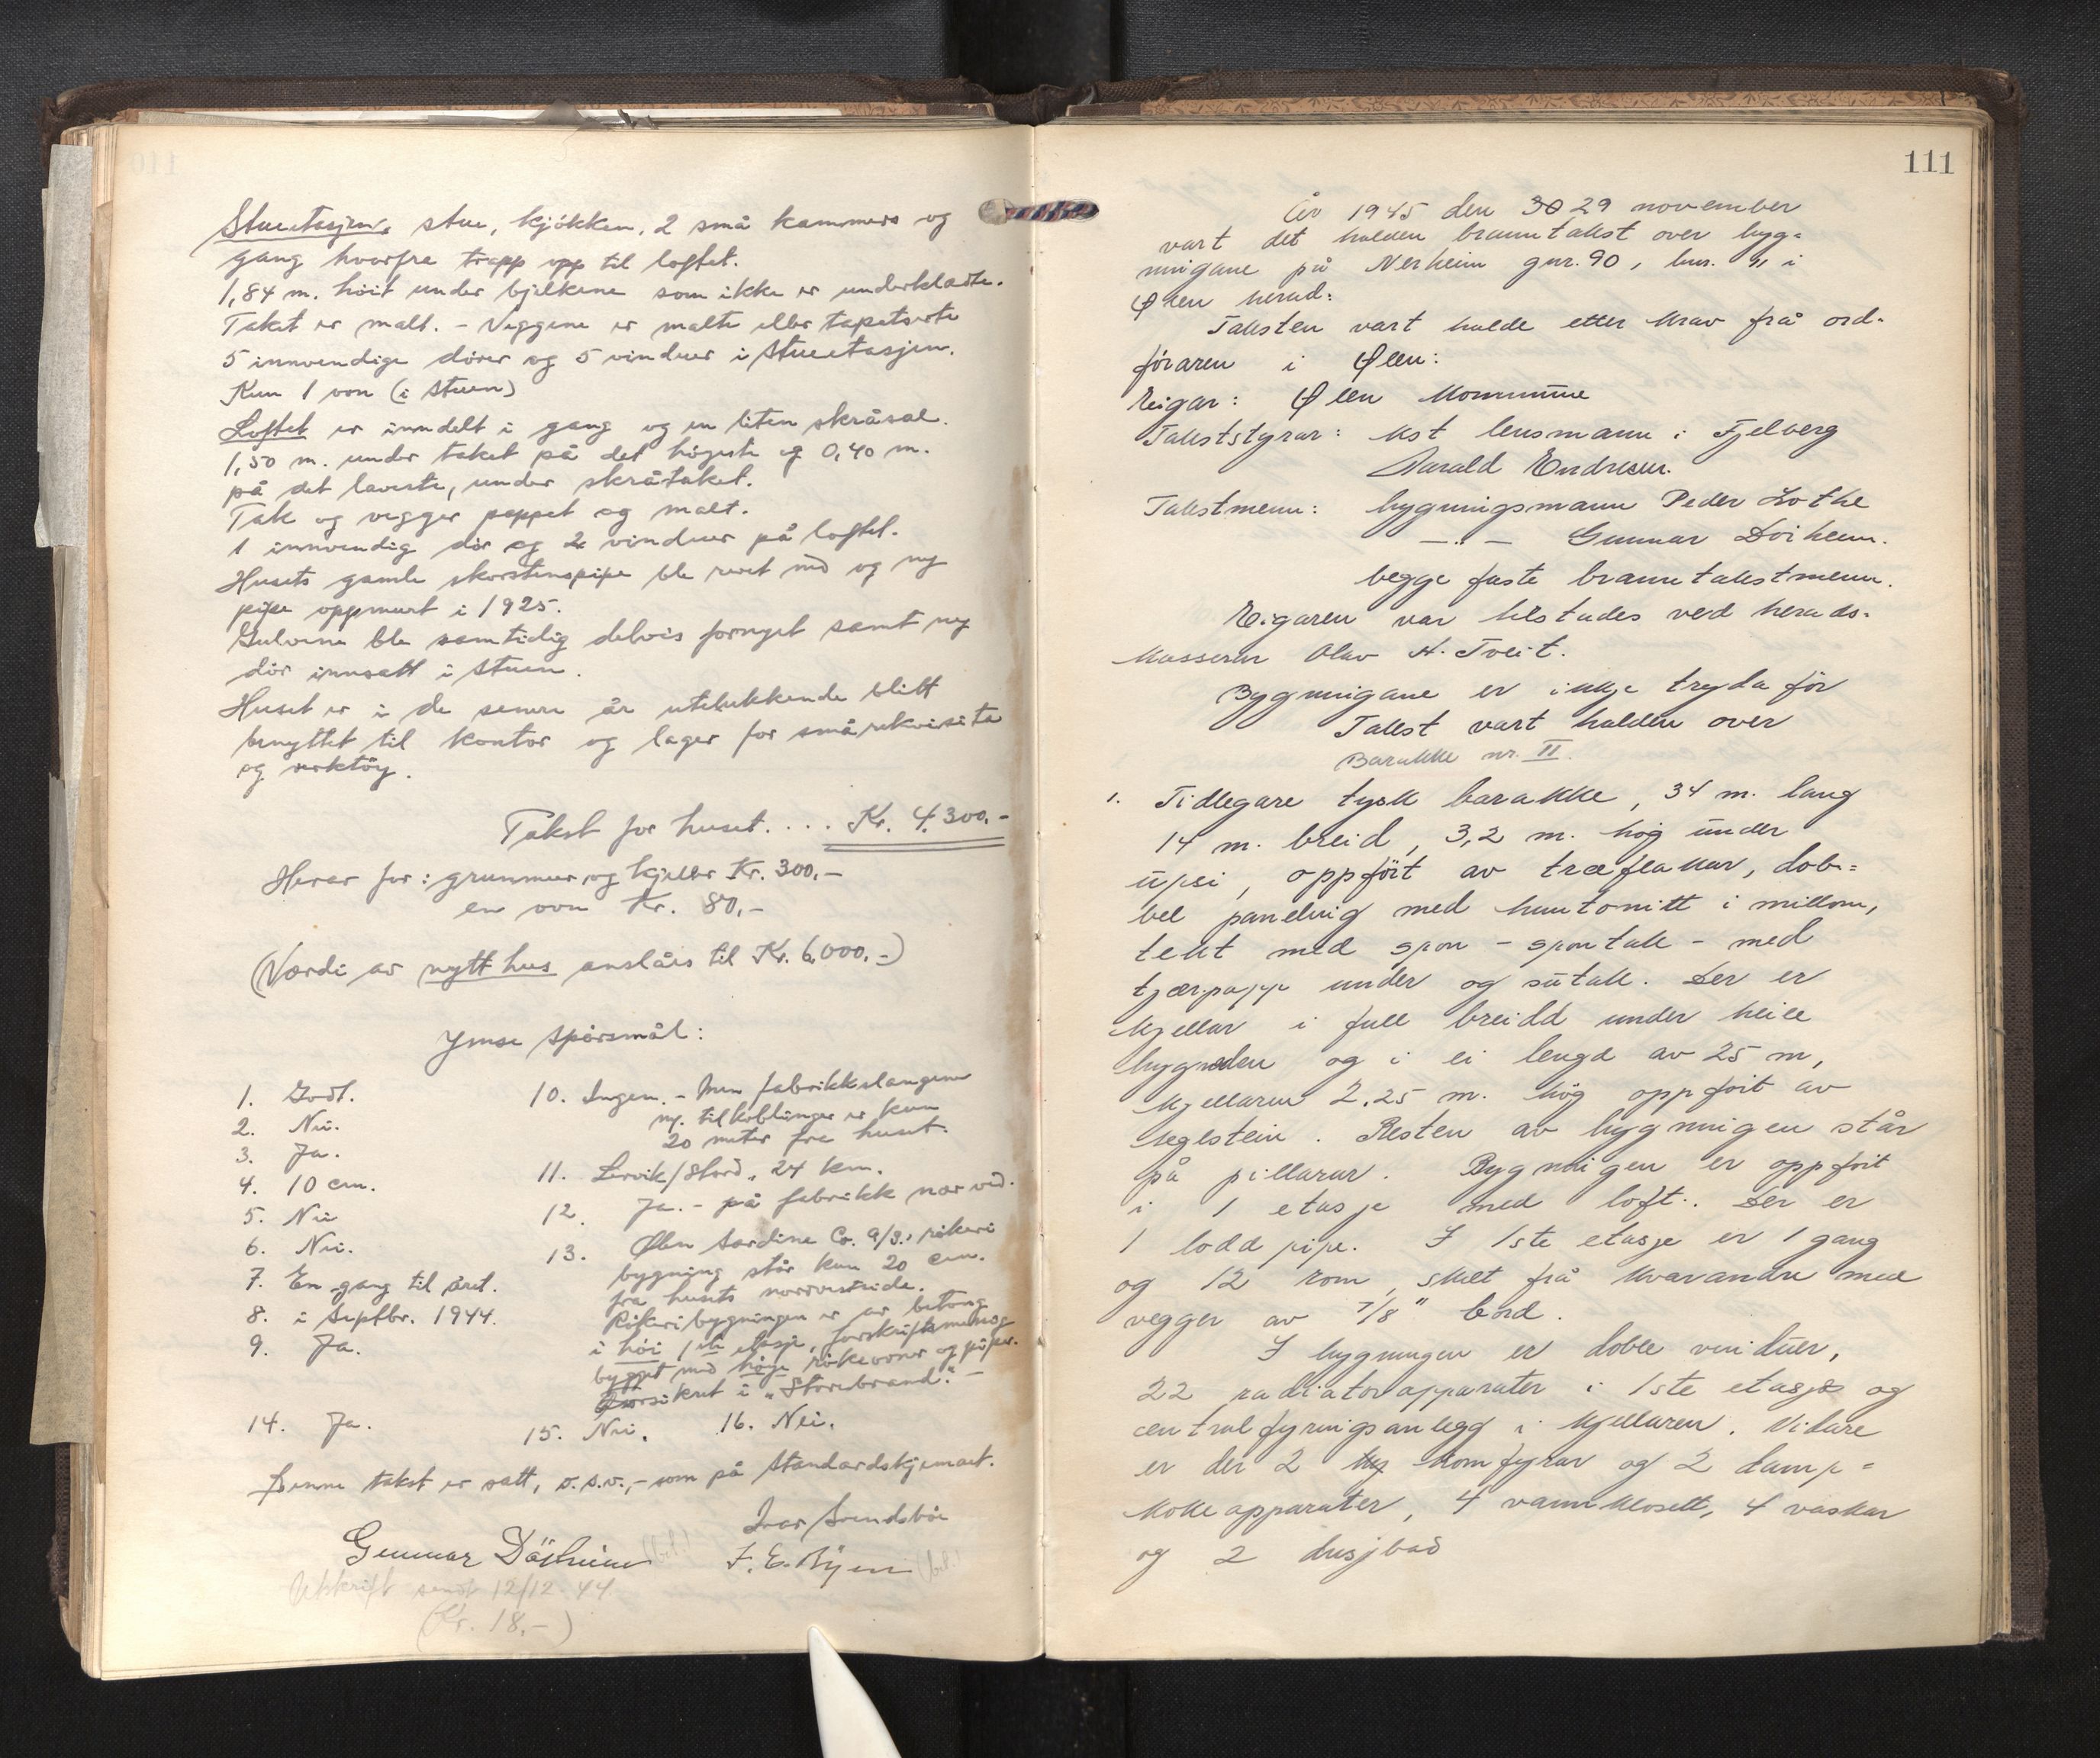 Stueetasjen, stue, kjökken, 2 små kammers og
gang hvorfra trapp opp til loftet.
1,84 m. höit under bjelkene som ikke er underkledte.
Taket er malt. - Veggene er malte eller tapetserte
5 innvendige dörer og 5 vinduer i stueetasjen.
Kun 1 ovn (i stuen)
Loftet er inndelt i gang og en liten skråsal.
1,50 m. under taket på det högeste og 0,40 m.
på det laveste, under skråtaket.
Tak og vegger pappet og malt.
1 innvendig dör og 2 vinduer på loftet.
Husets gamle skorstenspipe ble revet ned og ny
pipe oppmurt i 1925.
Gulvene ble samtidig delvis fornyet samt ny
dör innsatt i stuen.
Huset er i de senere år utelukkende blitt
benyttet til kontor og lager for små rekvisita
og verktöy.
Takst for huset. . . . Kr. 4.300.-
Herav for: grunnmur og kjeller Kr. 300,-
en ovn Kr. 80,-
(Verdi av nytt hus anslåes til Kr. 6.000.-)
Ymse spörsmål:
1. Godt.
2. Nei.
3. Ja.
4. 10 cm.
5. Nei
6. Nei.
7. En gang til året.
8. i Septbr. 1944.
9. Ja.
10. Ingen. - Men fabrikkslangene
m. tilkoblinger er kun
20 meter fra huset.
11. Lervik/Stord, 24 km.
12. Ja. - på fabrikk nær ved.
13. Ölen Sardine Co. A/S., rökeri
bygning står kun 20 cm.
fra husets norvestside.
Rökeribygningen er av betong
i höi 1ste etasje, forskriftsmessig
bygget med höge rökeovner og piper.
forsikret i "Storebrand". -
14. Ja.
15. Nei.
16. Nei.
Denne takst er satt, o.s.v., - som på Standardskjemaet.
Ivar Svendsböe
Gunnar Döiheim (bel.) F. E. Bjoen (bel.)
Utskrift sendt 12/12-44.
(Kr. 18,-)
111
År 1945 den 30 29 november
vart det halden branntakst over byg-
ningane på Nerheim gnr. 90, bnr. " i
Ølen herad:
Taksten vart halde etter krav frå ord-
föraren i Ølen:
Eigar: Ølen kommune
Takststyrar: kst lensmann i Fjelberg
Harald Endresen.
Takstmenn: bygningsmann Peder Lothe
— " — Gunnar Döiheim.
begge faste branntakstmenn.
Eigaren var tilstades ved herads-
kasserar Olav H. Tveit.
Bygningane er ikkje trygda för
Takst vart halden over
Barakke nr. II.
1. Tidlegare tysk barakke, 34 m. lang
14 m. breid, 3,2 m. hög under
upsi, oppfört av træflakar, dob-
bel paneling med huntonitt i millom,
tekt med spon - spontak - med
tjærpapp under og sutak. Der er
kjellar i full breidd under heile
bygnaden og i ei lengd av 25 m,
kjellaren 2.25 m. hög oppfört av
teglstein. Resten av bygningen står
på pillarar. Bygningen er oppfört
i 1 etasje med loft. Der er
1 loddpipe. I 1ste etasje er 1 gang
og 12 rom, skilt frå kvarandre med
vegger av 7/8" bord.
I bygningen er doble vinduer,
22 radiatorapparater i 1ste etasje og
centralfyringsanlegg i kjellaren. Vidare
er der 2 komfyrar og 2 damp-
kokeapparater, 4 vannklosett, 4 vaskar
og 2 dusjbad